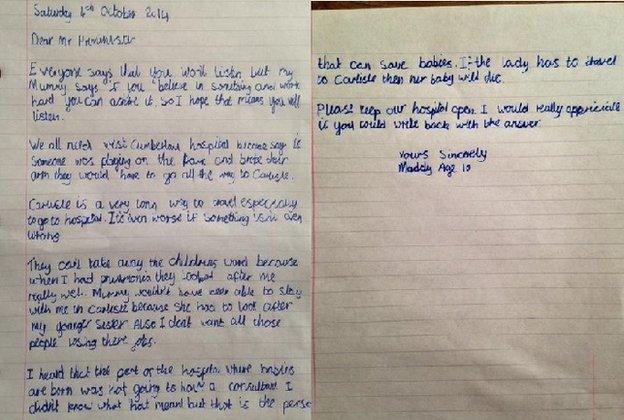 Saturday 4th October 2014
Dear Mr Primminister
Everyone says that you won't listen but my
Mummy says if you believe in something and work
hard you can achive it. So I hope that means you will
listen.
We all need West Cumberland hospital because say if
someone was playing on the park and broke their
arm they would have to go all the way to Carlisle.
Carlisle is a very long way to travel especially
to go to hospital. It's even worse if something is
wrong
They can't take away the childrens ward because
when I had pneumonia they looked after me
really well. Mummy wouldn't have been able to stay
with me in Carlisle because she had to look after
my younger sister. Also I dont want all those
people losing there jobs.
I heard that the part of the hospital where babies
are born was not going to have a consultant. I
didn't know what that meant but that is the person
that can save babies. If the lady has to travel
to Carlisle then her baby will die.
Please keep our hospital open. I would really appreciate
if you could write back with the answer.
Yours Sincerely
Maddy Age 10